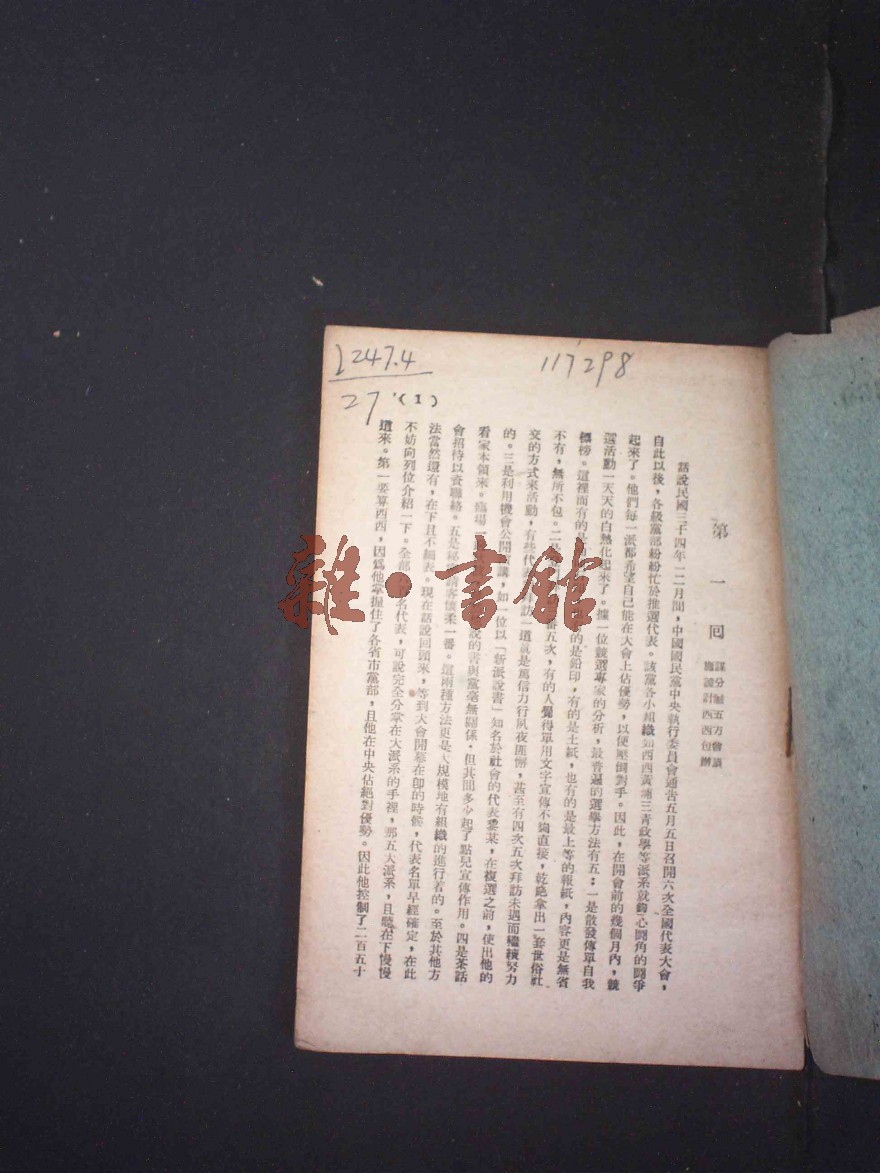 1247.4
27
117298
(1)
第一回
話說民國三十四年一二月間，中國國民黨中央執行委員會通告五月五日召開六次全國代表大會，
自此以後，各級黨部紛紛忙於推選代表。該黨各小組織如西西黃浦三青政學等派系就鈎心鬪角的鬪爭
起來了。他們每一派都希望自己能在大會上佔優勢，以便壓倒對手。因此，在開會前的幾個月內，競
選活動一天天的白熱化起來了。據一位競選專家的分析，最普遍的選舉方法有五：一是散發傳單自我
標榜。這裡面有的是的是鉛印，有的是土紙，也有的是最上等的報紙，內容更是無省
不有，無所不包。二五次，有的人覺得單用文字宣傳不夠直接，乾脆拿出一套世俗社
交的方式來活動，有些代表訪一道就是篤信力行夙夜匪懈，甚至有四次五次拜訪未遇而繼續努力
的。三是利用機會公開講，如位以「新派說書」知名於社會的代表黎某，在複選之前，使出他的
看家本領來。臨場一說的書與黨毫無關係，但其間多少起了點兒宣傳作用。四是茶話
會招待以資聯絡。五是請客懷柔一番。這兩種方法更是大規模地有組織的進行着的。至於其他方
法當然還有，在下且不細表。現在話說回頭來，等到大會開幕在卽的時候，代表名單早經確定，在此
不妨向列位介紹一下。全部名代表，可說完全分掌在大派系的手裡，那五大派系，且聽在下慢慢
道來。第一要算西西，因爲他掌握住了各省市黨部，且他在中央佔絕對優勢。因此他控制了二百五十
雜·書館